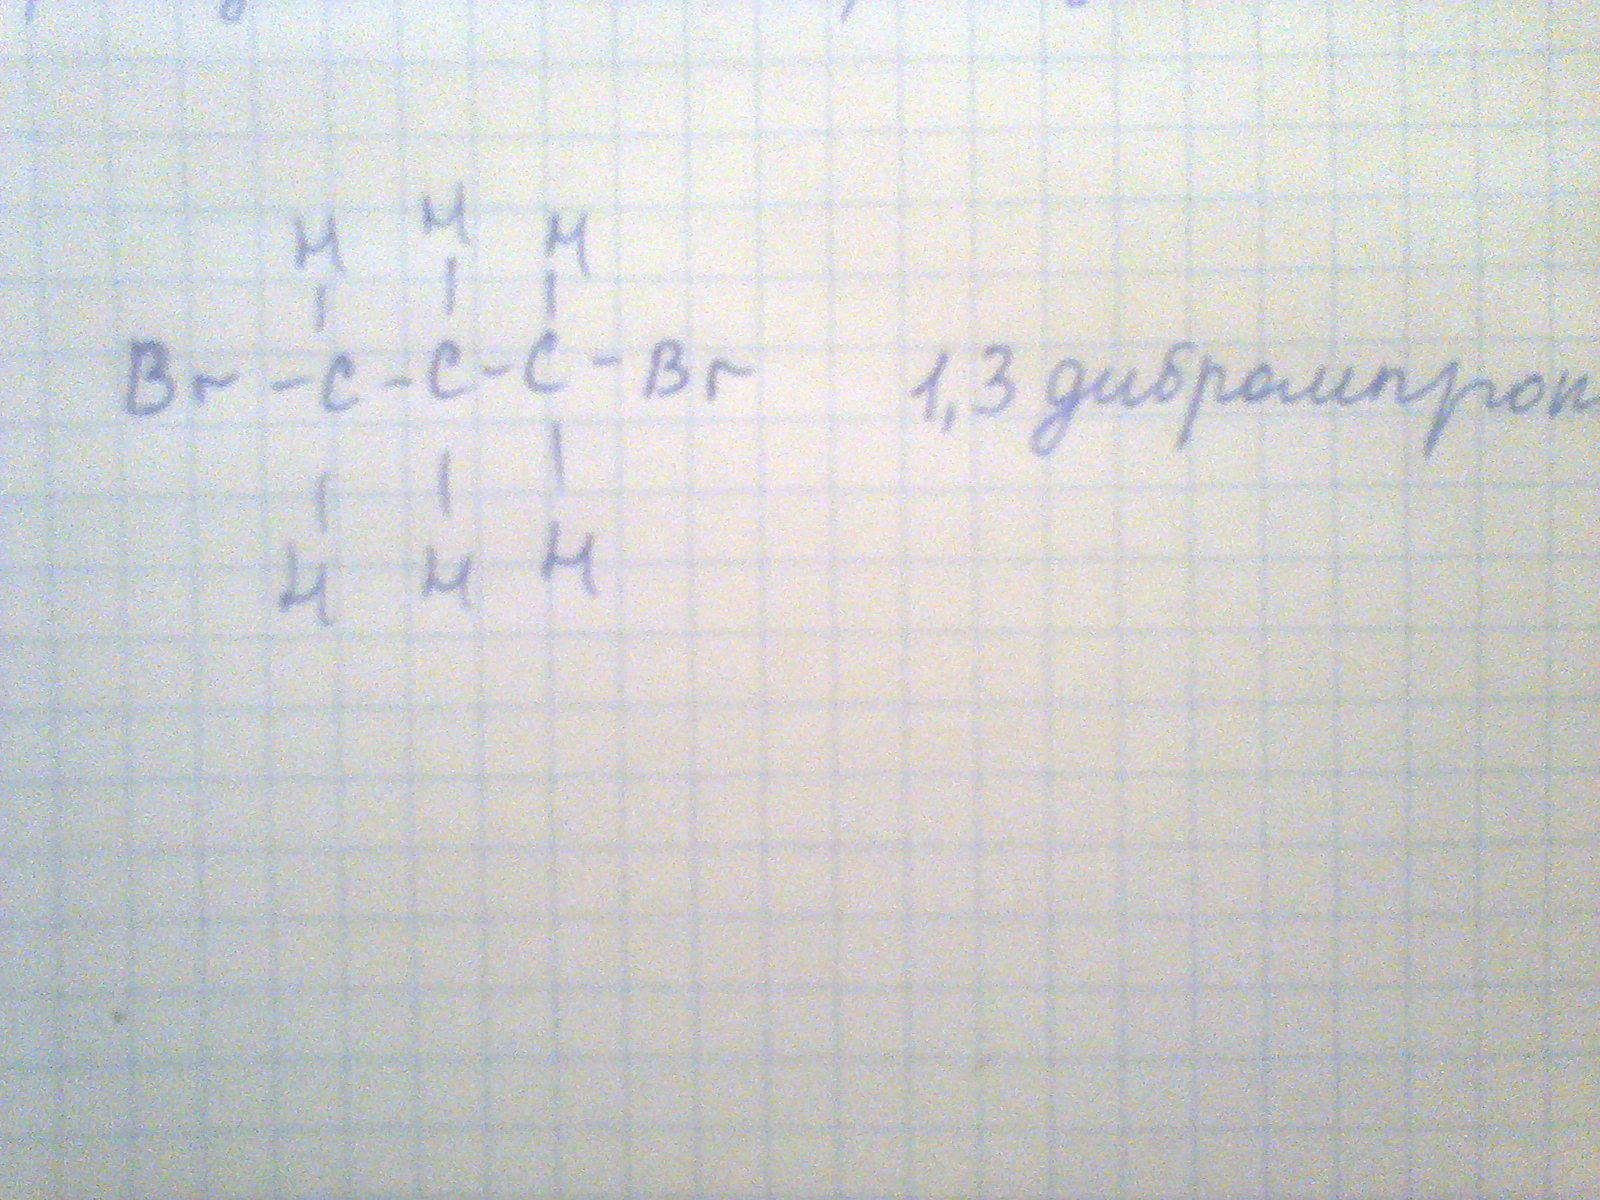 H H H
Br - C - C - C - Br 1,3 дибромпроп
H H H